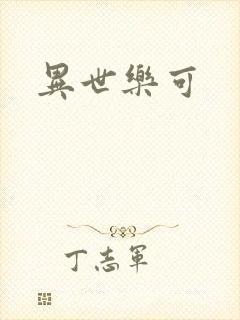 異世樂可
丁志軍